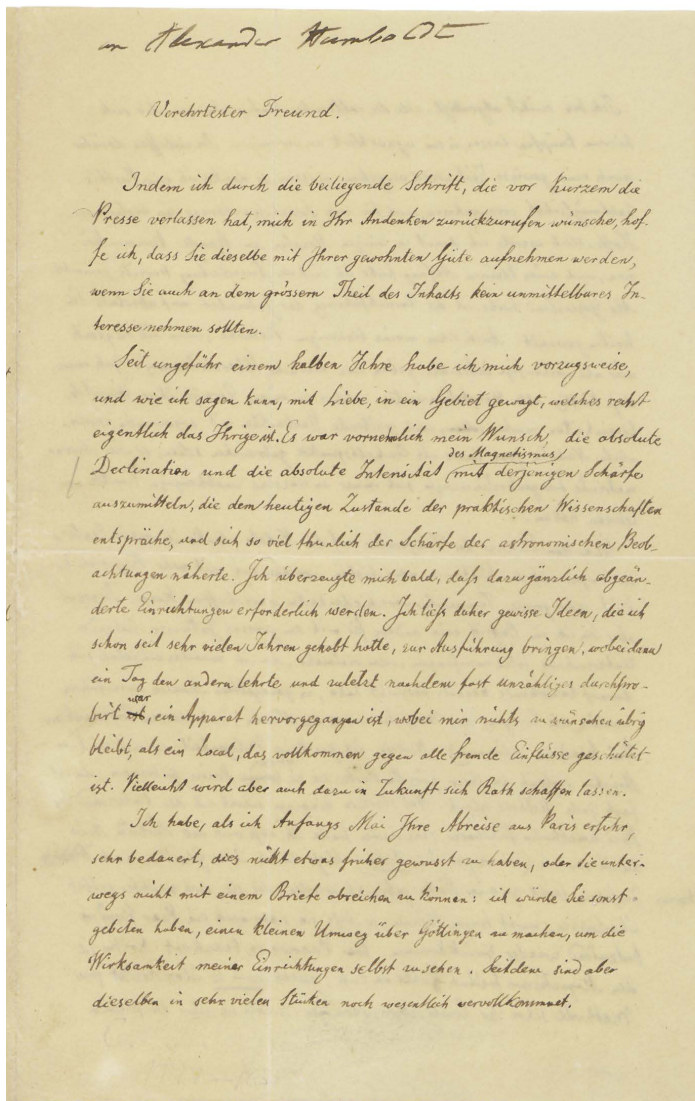 an Alexander Humboldt
Verehrtester Freund.
Indem ich durch die beiliegende Schrift, die vor Kurzem die
Presse verlassen hat, mich in Ihr Andenken zurückzurufen wünsche, hof-
fe ich, dass Sie dieselbe mit Ihrer gewohnten Güte aufnehmen werden,
wenn Sie auch an dem grössern Theil des Inhalts kein unmittelbares In-
teresse nehmen sollten.
Seit ungefähr einem halben Jahre habe ich mich vorzugsweise,
und wie ich sagen kann, mit Liebe, in ein Gebiet gewagt, welches recht
eigentlich das Ihrige ist. Es war vornehmlich mein Wunsch, die absolute
des Magnetismus
Declination und die absolute Intensität mit derjenigen Schärfe
auszumitteln, die dem heutigen Zustande der praktischen Wissenschaften
entspräche, und sich so viel thunlich der Schärfe der astronomischen Beob-
achtungen näherte. Ich überzeugte mich bald, daß dazu gänzlich abgeän-
derte Einrichtungen erforderlich werden. Ich ließ daher gewisse Ideen, die ich
schon seit sehr vielen Jahren gehabt hatte, zur Ausführung bringen, wobei dann
ein Tag den andern lehrte und zuletzt nachdem fast unzähliges durchpro-
war
birt ist, ein Apparat hervorgegangen ist, wobei mir nichts zu wünschen übrig
bleibt, als ein Local, das vollkommen gegen alle fremde Einflüsse geschützt
ist. Vielleicht wird aber auch dazu in Zukunft sich Rath schaffen lassen.
Ich habe, als ich Anfangs Mai Ihre Abreise aus Paris erfuhr,
sehr bedauert, dies nicht etwas früher gewusst zu haben, oder Sie unter-
wegs nicht mit einem Briefe abreichen zu können: ich würde Sie sonst
gebeten haben, einen kleinen Umweg über Göttingen zu machen, um die
Wirksamkeit meiner Einrichtungen selbst zu sehen. Seitdem sind aber
dieselben in sehr vielen Stücken noch wesentlich vervollkommnet.